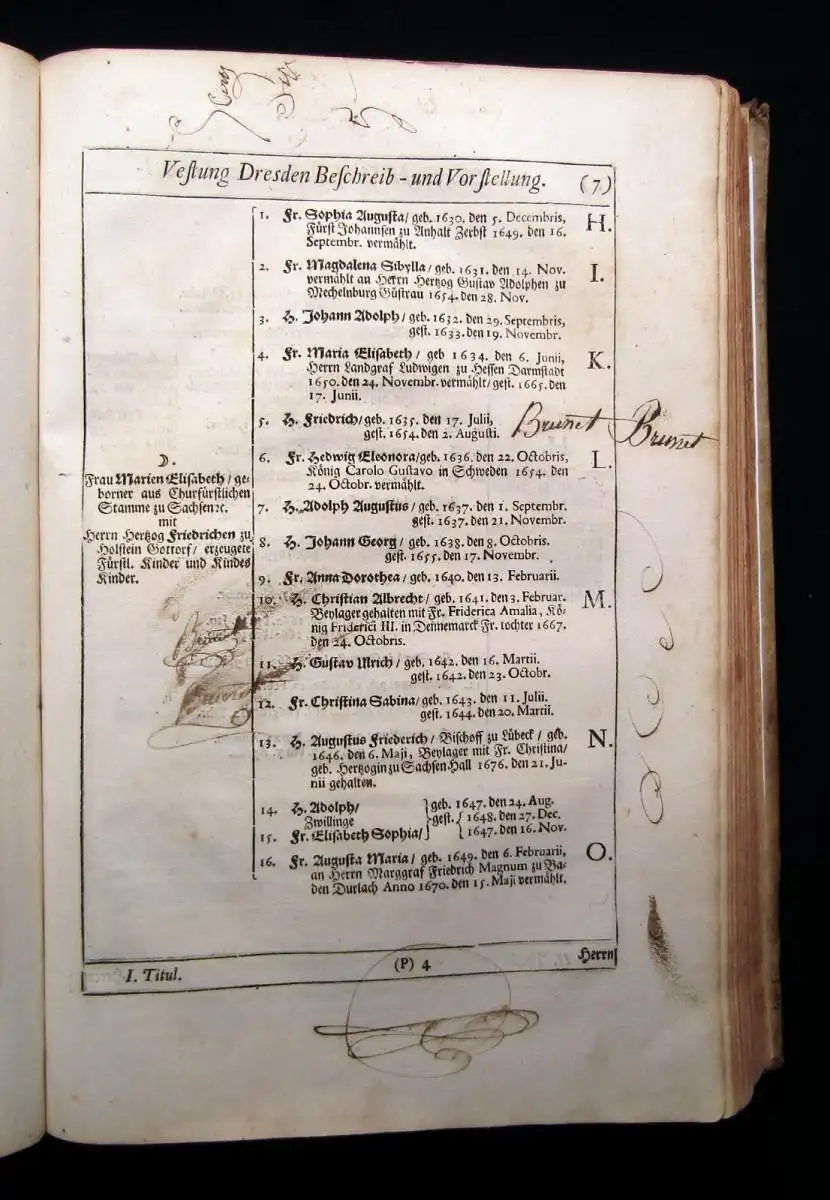 Vestung Dresden Beschreib- und Vorstellung. (7)
1. Fr. Sophia Augusta/ geb. 1630. den 5. Decembris, H.
Fürst Johannsen zu Anhalt Zerbst 1649. den 16.
Septembr. vermählt.
2. Fr. Magdalena Sibylla/ geb. 1631. den 14. Nov. I.
vermählt an Herrn Hertzog Gustav Adolphen zu
Mechelnburg Güstrau 1654. den 28. Nov.
3. H. Johann Adolph/ geb. 1632. den 29. Septembris,
gest. 1633. den 19. Novembr.
4. Fr. Maria Elisabeth/ geb 1634. den 6. Junii, K.
Herrn Landgraf Ludwigen zu Hessen Darmstadt
1650. den 24. Novembr. vermählt/ gest. 1665. den
17. Junii.
5. H. Friedrich/ geb. 1635. den 17. Julii,
gest. 1654. den 2. Augusti.
Brunet Brunet
6. Fr. Hedwig Eleonora/ geb. 1636. den 22. Octobris, L.
König Carolo Gustavo in Schweden 1654. den
24. Octobr. vermählt.
D.
Frau Marien Elisabeth/ ge-
borner aus Churfürstlichen
Stamme zu Sachsen ꝛc.
mit
Herrn Hertzog Friedrichen zu
Holstein Gottorf/ erzeugete
Fürstl. Kinder und Kindes
Kinder.
7. H. Adolph Augustus/ geb. 1637. den 1. Septembr.
gest. 1637. den 21. Novembr.
8. H. Johann Georg/ geb. 1638. den 8. Octobris.
gest. 1655. den 17. Novembr.
9. Fr. Anna Dorothea/ geb. 1640. den 13. Februarii.
10. H. Christian Albrecht/ geb. 1641. den 3. Februar. M.
Beylager gehalten mit Fr. Friderica Amalia, Kö-
nig Friderici III. in Dennemarck Fr. tochter 1667.
den 24. Octobris.
11. H. Gustav Ulrich/ geb. 1642. den 16. Martii.
gest. 1642. den 23. Octobr.
12. Fr. Christina Sabina/ geb. 1643. den 11. Julii.
gest. 1644. den 20. Martii.
13. H. Augustus Friederich/ Bischoff zu Lübeck/ geb. N.
1646. den 6. Maji, Beylager mit Fr. Christina/
geb. Hertzogin zu Sachsen Hall 1676. den 21. Ju-
nii gehalten.
14. H. Adolph/ geb. 1647. den 24. Aug.
Zwillinge gest. 1648. den 27. Dec.
15. Fr. Elisabeth Sophia/ 1647. den 16. Nov.
16. Fr. Augusta Maria/ geb. 1649. den 6. Februarii, O.
an Herrn Marggraf Friedrich Magnum zu Ba-
den Durlach Anno 1670. den 15. Maji vermählt.
I. Titul. (P) 4 Herrn